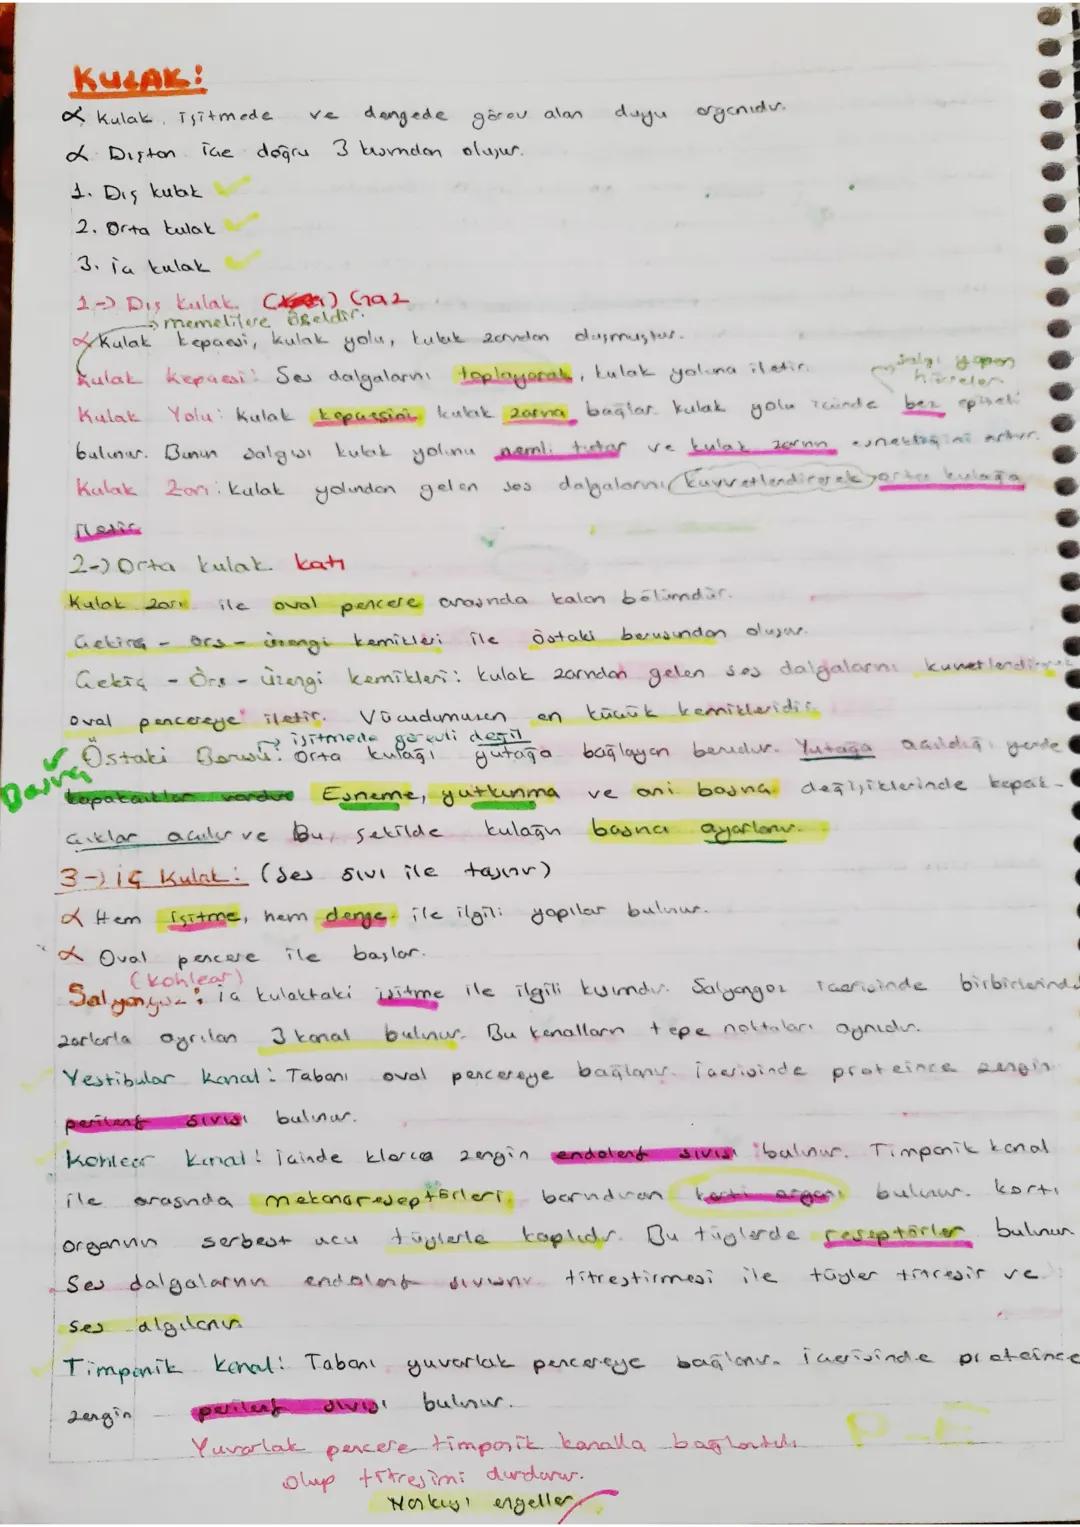 KULAK:
∝ Kulak, işitmede ve dengede görev alan duyu organıdır.
∝ Dıştan içe doğru 3 kısımdan oluşur.
1. Dış kulak
2. Orta kulak
3. İç kulak
1-) Dış kulak Gaz
→ memelilere özeldir.
∝ Kulak kepçesi, kulak yolu, kulak zarından oluşmuştur.
Kulak Kepçesi: Ses dalgalarını toplayarak, kulak yoluna iletir.
salgı yapan
hücreler
Kulak Yolu: Kulak kepçesini kulak zarına bağlar. Kulak yolu içinde bez epiteli
bulunur. Bunun salgısı kulak yolunu nemli tutar ve kulak zarının esnekliğini artırır.
Kulak Zarı: Kulak yolundan gelen ses dalgalarını kuvvetlendirerek orta kulağa
iletir
2-) Orta kulak katı
Kulak zarı ile oval pencere arasında kalan bölümdür.
Çekiç - örs - üzengi kemikleri ile östaki borusundan oluşur.
Çekiç - Örs - Üzengi kemikleri: Kulak zarından gelen ses dalgalarını kuvvetlendirerek
oval pencereye iletir. Vücudumuzun en küçük kemikleridir.
→ işitmede görevli değil
Östaki Borusu: Orta kulağı yutağa bağlayan borudur. Yutağa açıldığı yerde
kapakçıklar vardır Esneme, yutkunma ve ani basınç değişiklerinde kapak-
çıklar açılır ve Bu şekilde kulağın basıncı ayarlanır.
3-) İç Kulak: (Ses sıvı ile taşınır)
∝ Hem işitme, hem denge ile ilgili yapılar bulunur.
∝ Oval pencere ile başlar.
(Kohlear)
Salyangoz: İç kulaktaki işitme ile ilgili kısımdır. Salyangoz içerisinde birbirlerinde
zarlarla ayrılan 3 kanal bulunur. Bu kanalların tepe noktaları aynıdır.
Vestibular Kanal: Tabanı oval pencereye bağlanır. İçerisinde proteince zengin
perilenf sıvısı bulunur.
Kohlear Kanal: İçinde klorca zengin endolenf sıvısı bulunur. Timpanik kanal
ile arasında mekanoreseptörleri barındıran korti organı bulunur. Korti
organının serbest ucu tüylerle kaplıdır. Bu tüylerde reseptörler bulunur
Ses dalgalarının endolenf sıvısını titreştirmesi ile tüyler titreşir ve
ses algılanır
Timpanik Kanal: Tabanı yuvarlak pencereye bağlanır. İçerisinde proteince
zengin perilenf sıvısı bulunur.
Yuvarlak pencere timpanik kanalla bağlantılı
olup titreşimi durdurur.
Yankıyı engeller